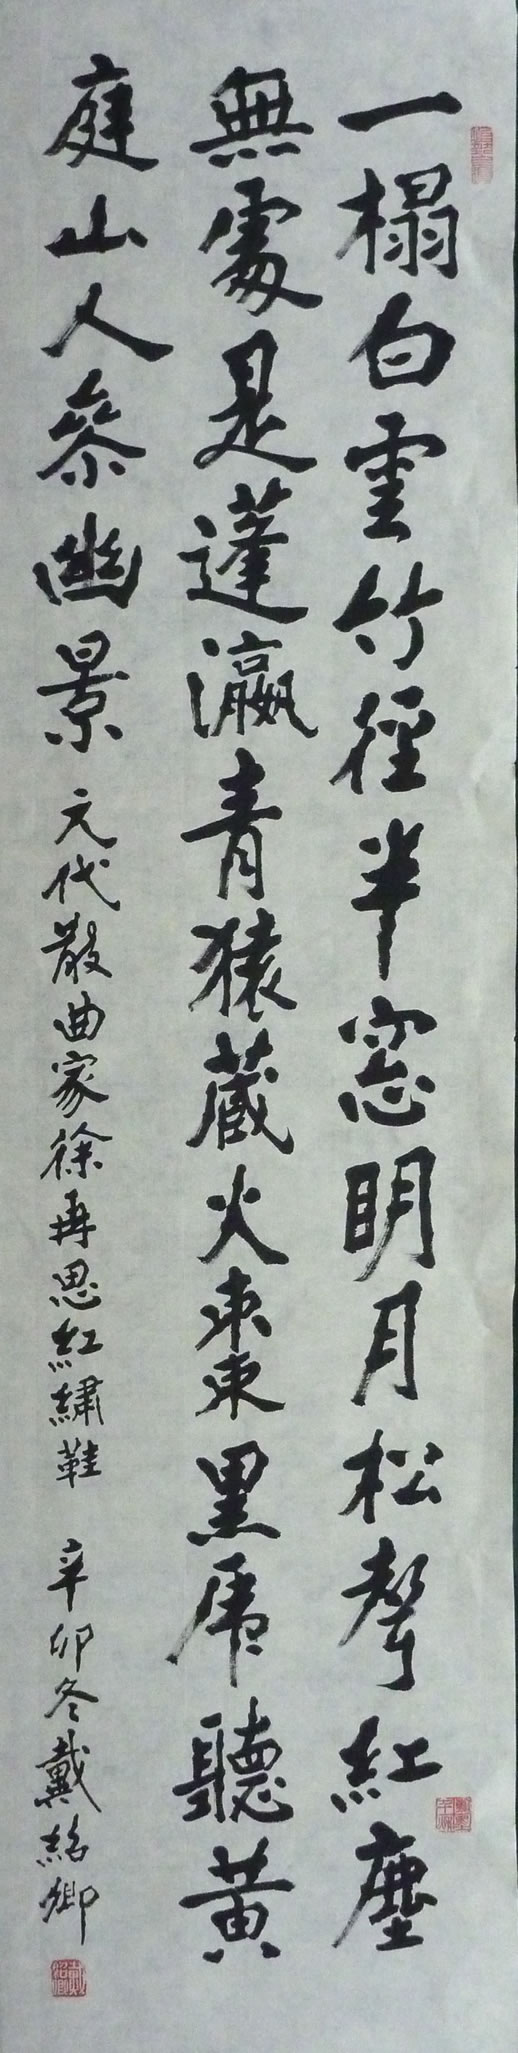 一榻白雲竹徑半窓明月松聲紅塵
無處是蓬瀛青猿藏火棗黑虎聽黃
庭山人參幽景 元代散曲家徐再思紅繡鞋 辛卯冬戴紹卿